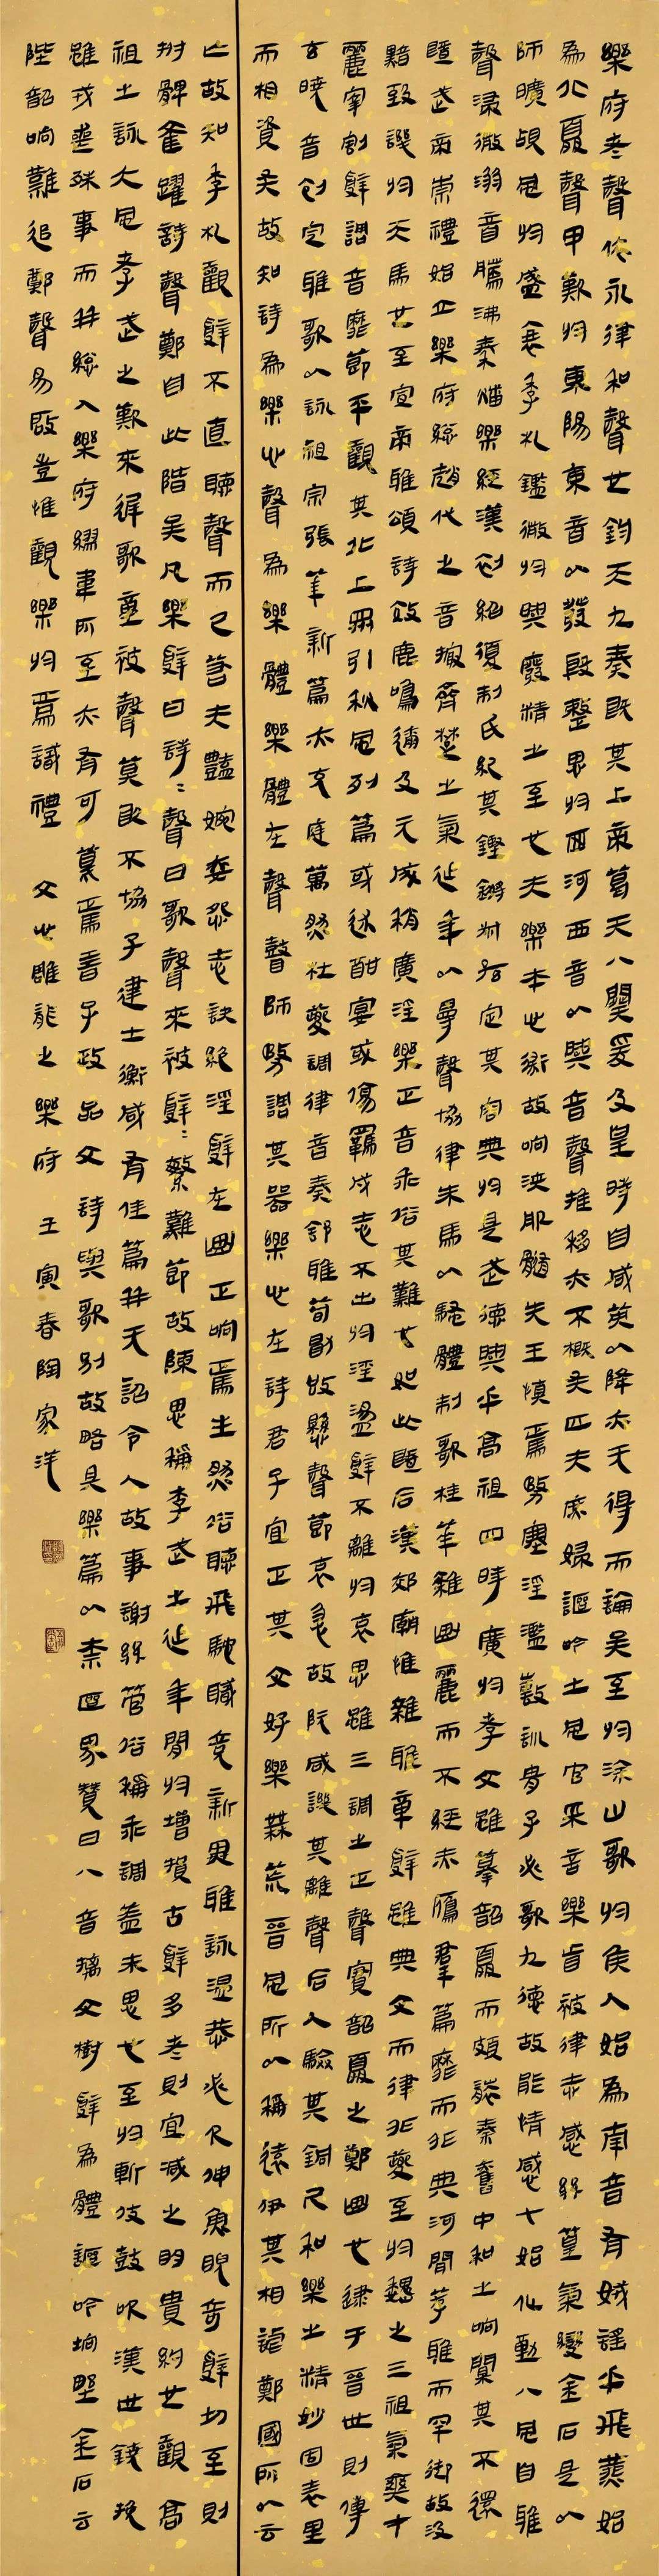 樂府者聲依永律和聲也鈞天九奏既其上帝葛天八闋爰及皇時自咸英以降亦无得而論矣至於涂山歌於侯人始為南音有娀謠乎飛燕始
為北夏聲甲歎於東陽東音以發殷整思於西河西音以興音聲推移亦不概矣匹夫庶婦謳吟土風官采言樂盲被律志感絲篁氣變金石是以
師曠覘風於盛衰季札鑑微於興廢精之至也夫樂本心術故响浹肌髓先王慎焉務塞淫濫敷訓胄子必歌九德故能情感七始化動八風自雅
聲浸微溺音騰沸秦燔樂經漢初紹復制氏紀其鏗鏘叔孫定其容典於是武德興乎高祖四時廣於孝文雖摹韶夏而頗襲秦舊中和之响闃其不還
暨武帝崇禮始立樂府總趙代之音撮齊楚之氣延年以曼聲協律朱馬以騷體制歌桂華雜曲麗而不經赤雁羣篇靡而非典河間薦雅而罕御故汲
黯致譏於天馬也至宣帝雅頌詩效鹿鳴邇及元成稍廣淫樂正音乖俗其難也如此暨后漢郊廟惟雜雅章辭雖典文而律非夔至於魏之三祖氣爽才
麗宰割辭調音靡節平觀其北上眾引秋風列篇或述酣宴或傷羈戍志不出於淫盪辭不離於哀思雖三調之正聲實韶夏之鄭曲也逮于晉世則傅
玄曉音創定雅歌以詠祖宗張華新篇亦充庭萬然杜夔調律音奏舒雅荀勖改懸聲節哀急故阮咸譏其離聲后人驗其銅尺和樂之精妙固表里
而相資矣故知詩為樂心聲為樂體樂體在聲瞽師務調其器樂心在詩君子宜正其文好樂無荒晉風所以稱遠伊其相謔鄭國所以云
亡故知季札觀辭不直聽聲而已若夫豔婉孌怨志訣絕淫辭在曲正响焉生然俗聽飛馳職競新異雅詠溫恭必欠伸魚睨奇辭切至則
拊髀雀躍詩聲鄭自此階矣凡樂辭曰詩詩聲曰歌聲來被辭辭繁難節故陳思稱李武之延年閒於增損古辭多者則宜減之明貴約也觀高
祖之詠大風孝武之歎來遲歌童被聲莫敢不協子建士衡咸有佳篇并无詔令人故事謝絲管俗稱乖調蓋未思也至於斬伎鼓吹漢世鐃挽
雖戎喪殊事而并總入樂府繆韋所至亦有可算焉昔子政品文詩與歌別故略具樂篇以標區界贊曰八音摛文樹辭為體謳吟坰野金石云
陛韶响難追鄭聲易啟豈惟觀樂於焉識禮 文心雕龍之樂府 壬寅春陶家洋